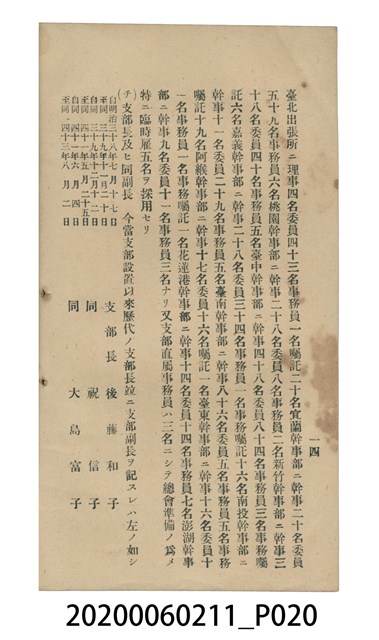 一四
臺北出張所ニ理事四名委員四十三名事務員一名囑託二十名宜蘭幹事部ニ幹事二十名委員
五十九名事務員六名桃園幹事部ニ幹事二十八名委員八名事務員二名新竹幹事部ニ幹事三
十八名委員四十名事務員五名臺中幹事部ニ幹事四十八名委員八十四名事務員三名事務囑
託六名嘉義幹事部ニ幹事二十八名委員三十四名事務員一名事務囑託十六名南投幹事部ニ
幹事十一名委員二十九名事務員五名臺南幹事部ニ幹事八十六名委員五名事務員五名事務
囑託十九名阿緱幹事部ニ幹事十七名委員十六名囑託一名臺東幹事部ニ幹事十六名委員十
一名事務員一名事務囑託一名花蓮港幹事部ニ幹事十四名委員十四名事務員七名澎湖幹事
部ニ幹事九名委員十一名事務員三名ナリ又支部直屬事務員ハ三名ニシテ總會準備ノ爲メ
特ニ臨時雇五名ヲ採用セリ
(チ)支部長及ヒ同副長 今當支部設置以來歷代ノ支部長竝ニ支部副長ヲ記スレハ左ノ如シ
自明治三十八年七月十七日
至同三十九年十一月二十日 支部長 後藤和子
自同三十九年十二月十二日
至同四十一年五月二十五日 同 祝信子
自同四十一年六月四日
至同四十三年八月二日 同 大島富子
20200060211_P020